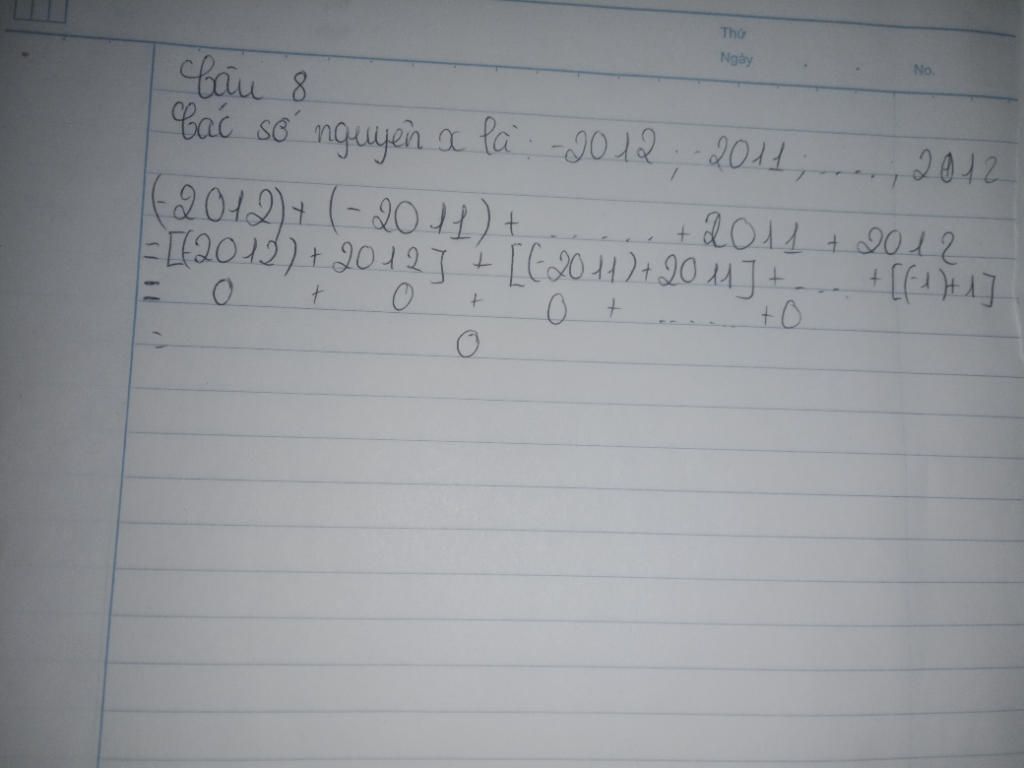 Thứ
Ngày . . No.
Câu 8
Các số nguyên x là : -2012 ; -2011 ; ..... ; 2012
(-2012) + (-2011) + ...... + 2011 + 2012
= [(-2012) + 2012] + [(-2011) + 2011] + .... + [(-1)+1]
= 0 + 0 + 0 + ...... + 0
= 0